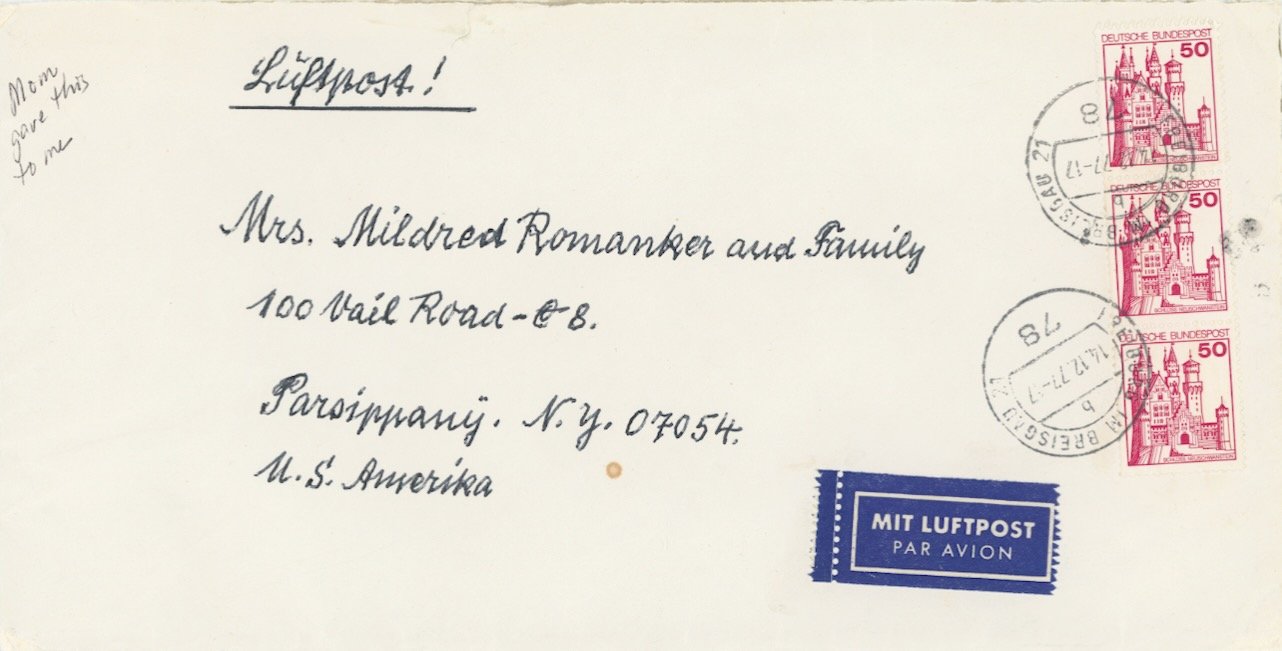 Mom
gave this
to me
Luftpost!
Mrs. Mildred Romanker and Family
100 Vail Road - C 8.
Parsippanÿ. N.Y. 07054.
U.S. Amerika
DEUTSCHE BUNDESPOST
50
SCHLOSS NEUSCHWANSTEIN
DEUTSCHE BUNDESPOST
50
SCHLOSS NEUSCHWANSTEIN
DEUTSCHE BUNDESPOST
50
SCHLOSS NEUSCHWANSTEIN
78
FREIBURG IM BREISGAU 21
14.12.77-17
b
78
FREIBURG IM BREISGAU 21
14.12.77-17
b
MIT LUFTPOST
PAR AVION